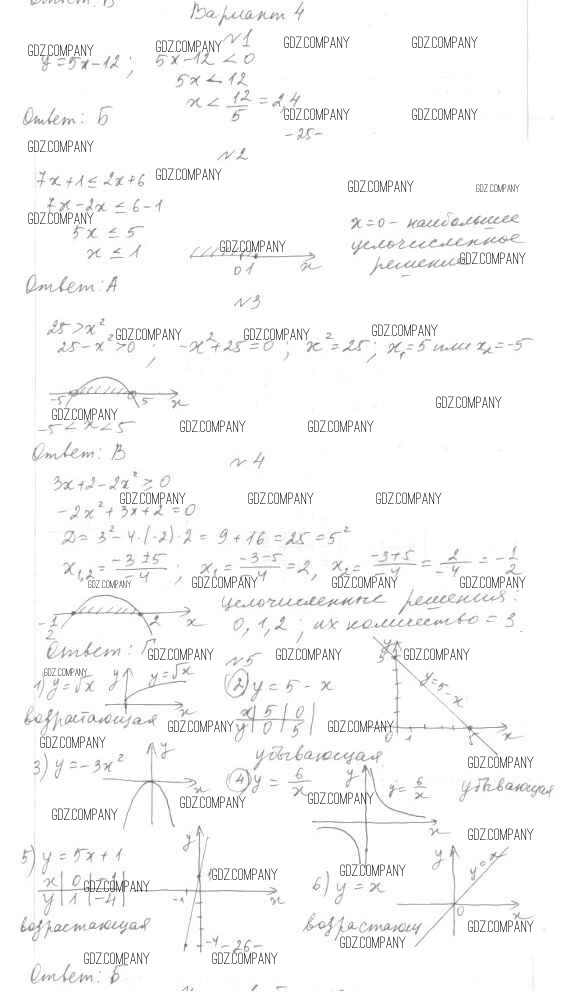 Ответ: В
Вариант 4
№1
y = 5x-12; 5x-12 < 0
5x < 12
x < 12/5 = 2,4
Ответ: Б
-25-
№2
7x+1 ≤ 2x+6
7x-2x ≤ 6-1
5x ≤ 5
x ≤ 1
0 1 x
x=0 - наибольшее
целочисленное
решение
Ответ: А
№3
25 > x²
25-x² > 0; -x²+25=0; x²=25; x₁=5 или x₂=-5
-5 5 x
-5 < x < 5
Ответ: В
№4
3x+2-2x² ≥ 0
-2x²+3x+2=0
D = 3²-4·(-2)·2 = 9+16 = 25 = 5²
x₁,₂ = -3±5/-4; x₁ = -3-5/-4 = 2, x₂ = -3+5/-4 = 2/-4 = -1/2
-1/2 2 x
целочисленные решения:
0, 1, 2; их количество = 3.
Ответ: Г
№5
1) y=√x y y=√x x
возрастающая
2) y = 5 - x
x 5 0
y 0 5
убывающая
y 5 y=5-x 0 1 5 x
3) y = -3x² y x
4) y = 6/x y y=6/x x
убывающая
5) y = 5x+1
x 0 -1
y 1 -4
возрастающая
y 1 -1 x -4
6) y = x
возрастающ
y y=x 0 x
-26-
Ответ: Б
GDZ.COMPANY